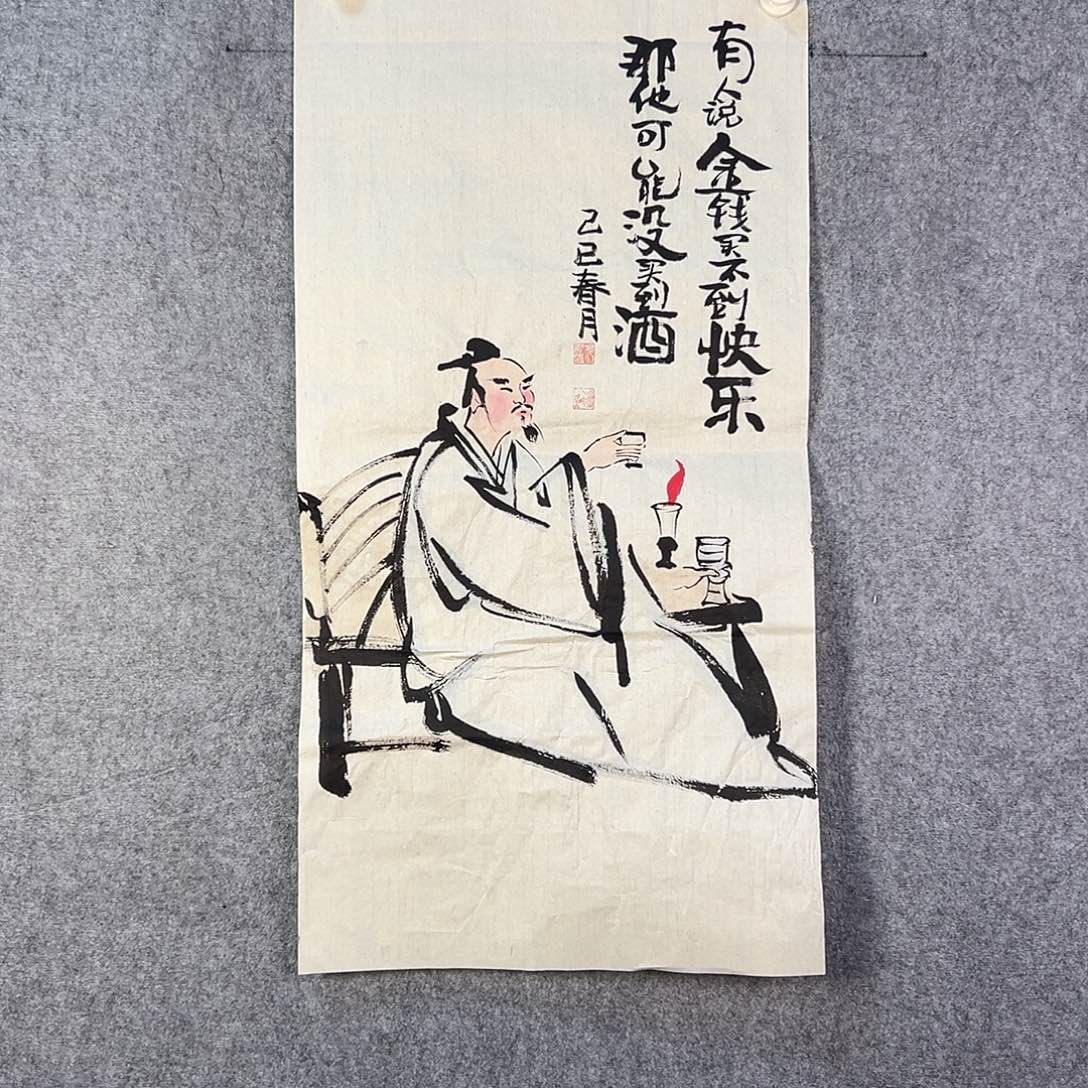 有人说金钱买不到快乐
那他可能没买到酒
己巳春月